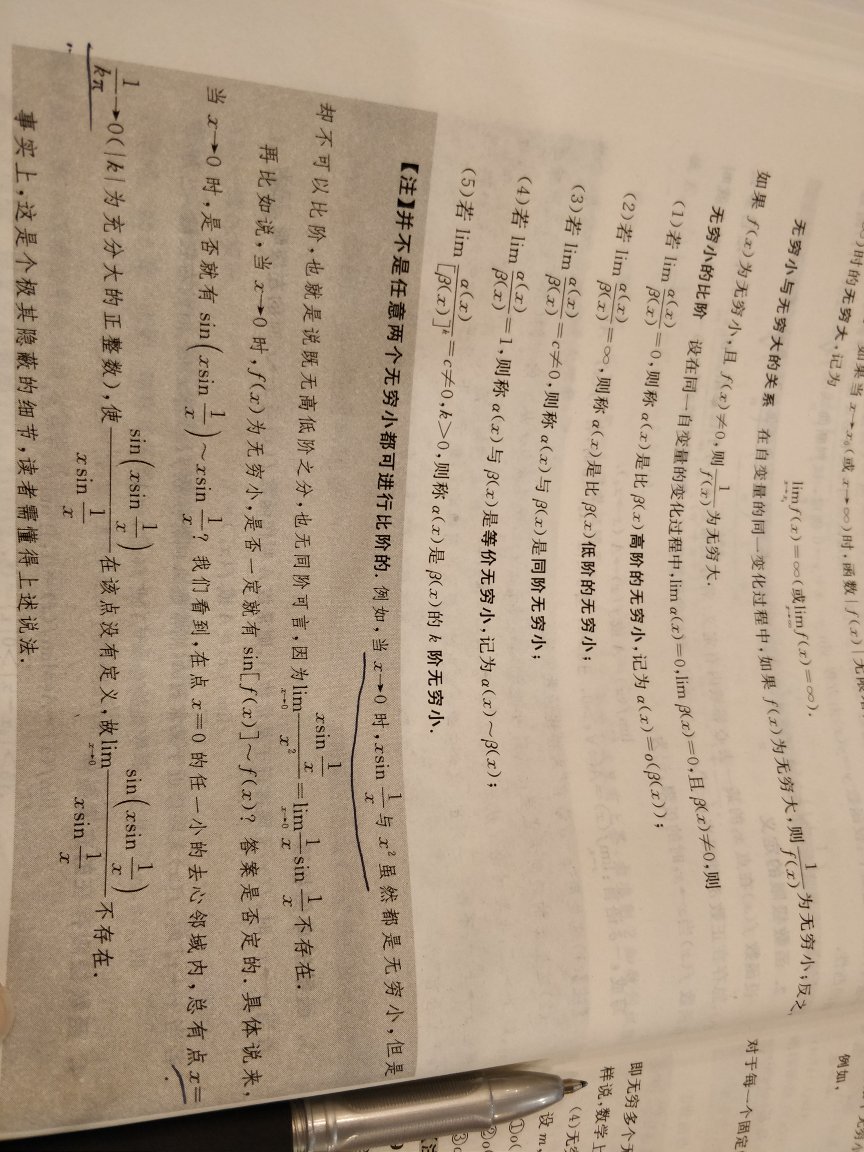 时的无穷大,记为
lim f(x)=∞(或lim f(x)=∞).
无穷小与无穷大的关系 在自变量的同一变化过程中,如果 f(x)为无穷大,则 1/f(x) 为无穷小;反之,
如果 f(x)为无穷小,且 f(x)≠0,则 1/f(x) 为无穷大.
无穷小的比阶 设在同一自变量的变化过程中,lim α(x)=0,lim β(x)=0,且 β(x)≠0,则
(1)若 lim α(x)/β(x)=0,则称 α(x)是比 β(x)高阶的无穷小,记为 α(x)=o(β(x));
(2)若 lim α(x)/β(x)=∞,则称 α(x)是比 β(x)低阶的无穷小;
(3)若 lim α(x)/β(x)=c≠0,则称 α(x)与 β(x)是同阶无穷小;
(4)若 lim α(x)/β(x)=1,则称 α(x)与 β(x)是等价无穷小,记为 α(x)~β(x);
(5)若 lim α(x)/[β(x)]^k=c≠0,k>0,则称 α(x)是 β(x)的 k 阶无穷小.
【注】并不是任意两个无穷小都可进行比阶的.例如,当 x→0 时,xsin 1/x 与 x² 虽然都是无穷小,但是
却不可以比阶,也就是说既无高低阶之分,也无同阶可言,因为 lim_{x→0} (xsin 1/x)/x² = lim_{x→0} 1/x sin 1/x 不存在.
再比如说,当 x→0 时,f(x)为无穷小,是否一定就有 sin[f(x)]~f(x)?答案是否定的.具体说来,
当 x→0 时,是否就有 sin(xsin 1/x)~xsin 1/x?我们看到,在点 x=0 的任一小的去心邻域内,总有点 x=
1/kπ→0(|k|为充分大的正整数),使 sin(xsin 1/x)/(xsin 1/x) 在该点没有定义,故 lim_{x→0} sin(xsin 1/x)/(xsin 1/x) 不存在.
事实上,这是个极其隐蔽的细节,读者需懂得上述说法.
例如,
对于每一个固定
即无穷多个无
样说,数学上
(4)无穷
设 m,
①o(
②o(
③o(